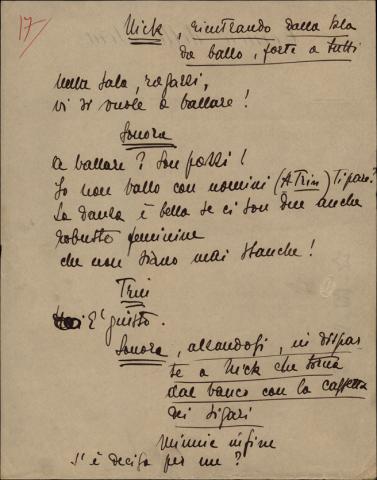 17
Nick, rientrando dalla sala
da ballo, forte a tutti
Nella sala, ragazzi,
vi si vuole a ballare!
Sonora
A ballare? Son pazzi!
Io non ballo con uomini (A Trin) Ti pare?
La danza è bella se ci son due anche
robuste feminine
che non siano mai stanche!
Trin
È giusto.
Sonora, alzandosi, in dispar
te a Nick che torna
dal banco con la cassetta
dei sigari
Minnie infine
s'è decisa per me?